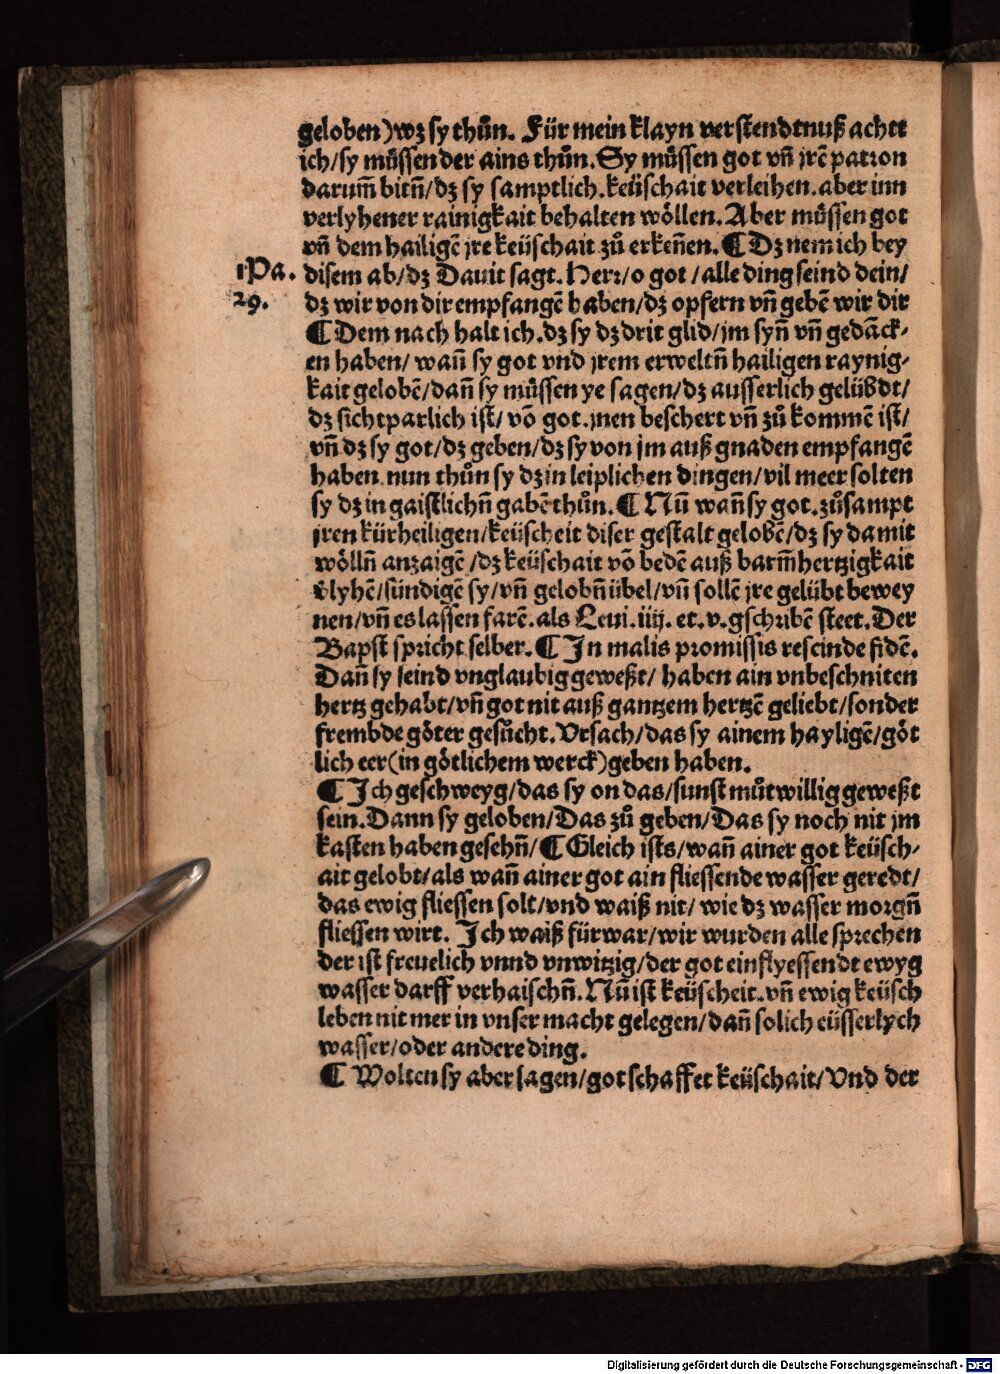 geloben) wz sy thůn. Für mein klayn verstendtnuß achtt
ich/sy müssen der ains thůn. Sy müssen got vñ jrẽ patron
darum̃ bitñ/dz sy samptlich. keüschait verleihen. aber inn
verlyhener rainigkait behalten wöllen. Aber müssen got
vñ dem hailigẽ jre keüschait zů erkeñen. ¶ Dz nem ich bey
1 Pa. disem ab/dz Dauit sagt. Herr/o got/alle ding seind dein/
29. dz wir von dir empfangẽ haben/dz opfern vñ gebẽ wir dir
¶ Dem nach halt ich. dz sy dz drit glid/jm syñ vñ gedãck-
en haben/ wañ sy got vnd jrem erweltñ hailigen raynig-
kait gelobẽ/dañ sy müssen ye sagen/dz ausserlich gelüßdt/
dz sichtparlich ist/ võ got. jnen beschert vñ zů kommẽ ist/
vñ dz sy got/dz geben/dz sy von jm auß gnaden empfangẽ
haben. nun thůn sy dz in leiplichen dingen/vil meer solten
sy dz in gaistlichñ gabẽ thůn. ¶ Nũ wañ sy got. zůsampt
jren kürheiligen/keüscheit diser gestalt gelobẽ/dz sy damit
wöllñ anzaigẽ/dz keüschait võ bedẽ auß barm̃hertzigkait
v̆lyhẽ/sündigẽ sy/vñ gelobñ übel/vñ sollẽ jre gelübt bewey
nen/vñ es lassen farẽ. als Leui. iiij. et. v. gschribẽ steet. Der
Bapst spricht selber. ¶ In malis promissis rescinde fidẽ.
Dañ sy seind vnglaubig geweßt/ haben ain vnbeschniten
hertz gehabt/vñ got nit auß gantzem hertzẽ geliebt/sonder
frembde göter gesůcht. Vrsach/das sy ainem hayligẽ/göt
lich eer(in götlichem werck)geben haben.
¶ Ich geschweyg/das sy on das/sunst můtwillig geweßt
sein. Dann sy geloben/Das zů geben/Das sy noch nit jm
kasten haben gesehñ/¶ Gleich ists/wañ ainer got keüsch-
ait gelobt/als wañ ainer got ain fliessende wasser geredt/
das ewig fliessen solt/vnd waiß nit/ wie dz wasser morgñ
fliessen wirt. Ich waiß fürwar/wir wurden alle sprechen
der ist freuelich vnnd vnwitzig/der got ein flyessendt ewyg
wasser darff verhaischñ. Nũ ist keüscheit. vñ ewig keüsch
leben nit mer in vnser macht gelegen/dañ solich eüsserlych
wasser/oder andere ding.
¶ Wolten sy aber sagen/got schaffet keüschait/Vnd der
Digitalisierung gefördert durch die Deutsche Forschungsgemeinschaft - DFG